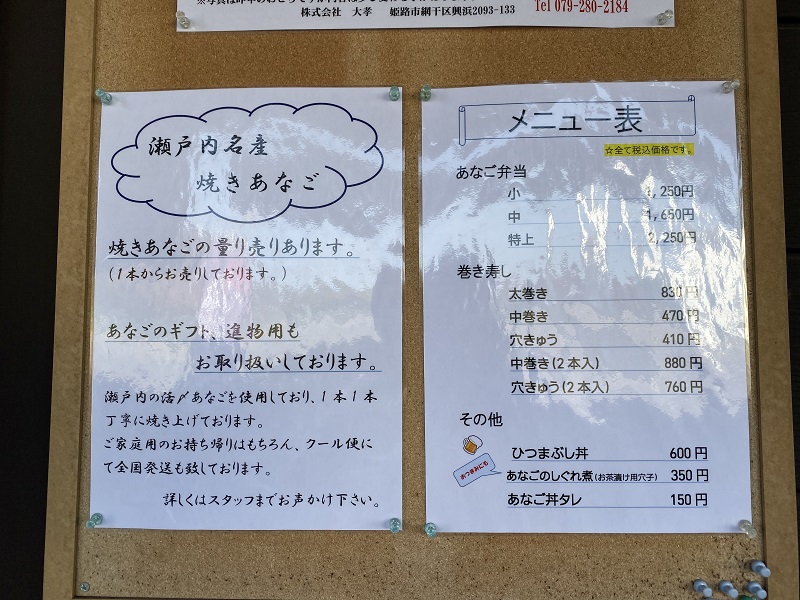 株式会社　大孝　姫路市網干区興浜2093-133
Tel 079-280-2184
瀬戸内名産
焼きあなご
焼きあなごの量り売りあります。
(1本からお売りしております。)
あなごのギフト、進物用も
お取り扱いしております。
瀬戸内の活〆あなごを使用しており、1本1本
丁寧に焼き上げております。
ご家庭用のお持ち帰りはもちろん、クール便に
て全国発送も致しております。
詳しくはスタッフまでお声かけ下さい。
メニュー表
☆全て税込価格です。
あなご弁当
小 1,250円
中 1,650円
特上 2,250円
巻き寿し
太巻き 830円
中巻き 470円
穴きゅう 410円
中巻き(2本入) 880円
穴きゅう(2本入) 760円
その他
ひつまぶし丼 600円
おつまみにも
あなごのしぐれ煮(お茶漬け用穴子) 350円
あなご丼タレ 150円